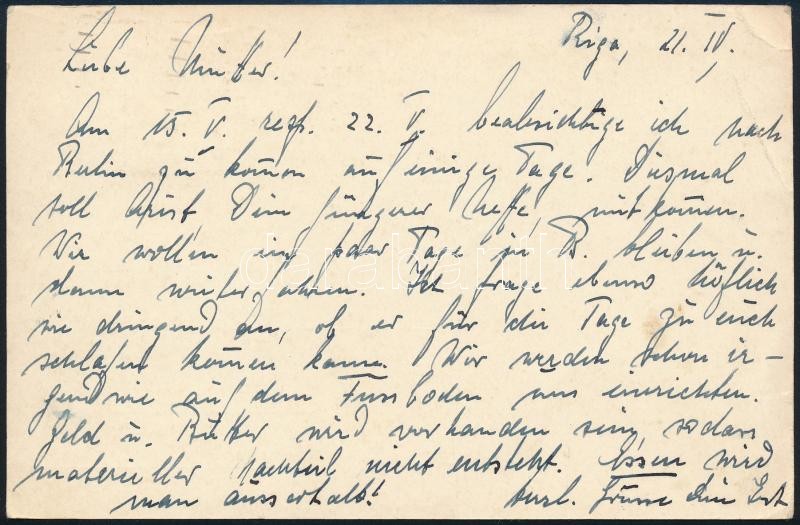 Riga, 21. IV.
Liebe Mutter!
Am 15. V. resp. 22. V. beabsichtige ich nach
Berlin zu kommen auf einige Tage. Diesmal
soll Dein jüngerer Neffe, mitkommen.
Wir wollen ein paar Tage in B. bleiben u.
dann weiterfahren. Ich frage ebenso höflich
wie dringend an, ob er für die Tage zu euch
schlafen kommen kann. Wir werden schon ir-
gendwie auf dem Fussboden uns einrichten.
Geld u. Butter wird vorhanden sein, sodass
materieller Nachteil nicht entsteht. Essen wird
man ausserhalb! herzl. Grüsse Dein
darabanth